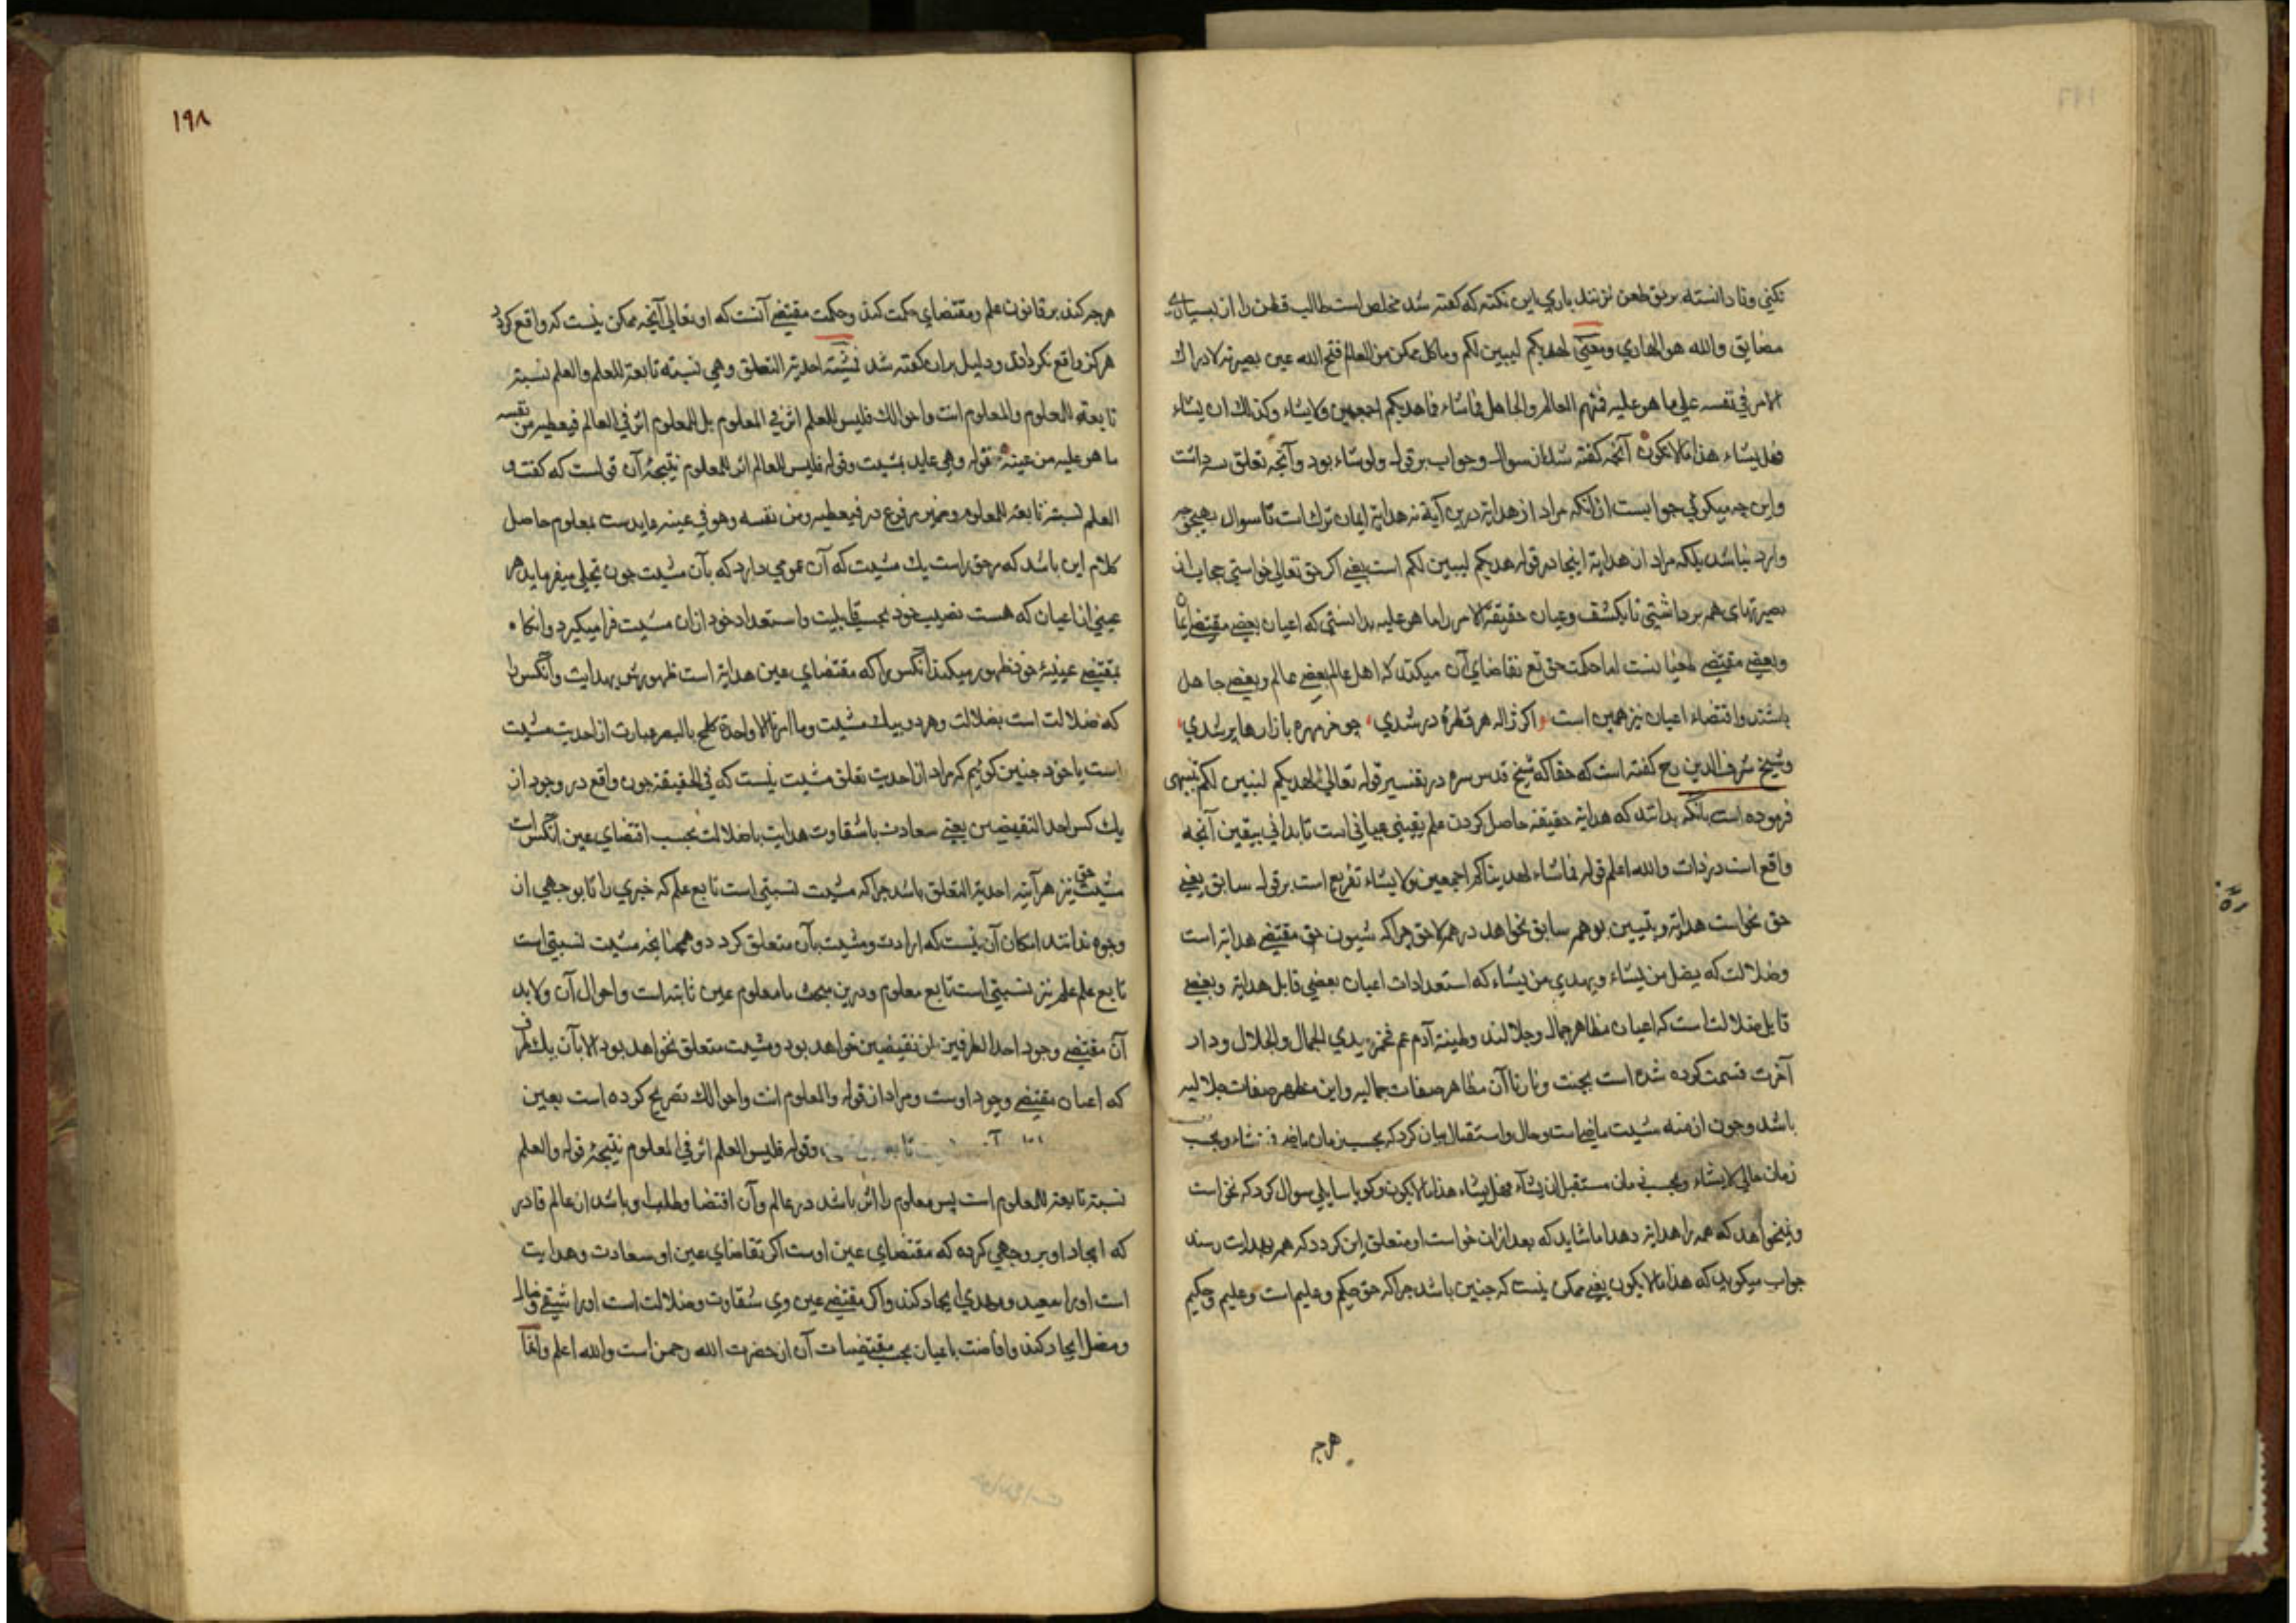 نکنی ونا دانسته برمن طعن نزنند باری این نکته که کفته شد مخلص است طالب فطن را از بسیاری
مضایق والله هو الهادی ومعنی لهدیکم لیبین لکم وما کل ممکن من العالم فتح الله عین بصیرته لادراك
الامر فی نفسه علی ما هو علیه فمنهم العالم والجاهل فما شاء فما هدیکم اجمعین ولا یشاء وکذلك ان یشاء
فهل یشاء هذا ما لا یکون آنجه کفته شد از سوال وجواب بر قوله ولو شاء بود وآنجه تعلق بدانست
واین جه میکوئی جوابست از انکه مراد از هدایة درین آیة نه هدایة ایمان ترك است تا سوال بهیج وجه
وارد نباشد بلکه مراد از هدایة اینجا در قوله هدیکم لیبین لکم است یعنی اکر حق تعالی خواستی حجاب از
بصیرتهای همه برداشتی تا بکشف وعیان حقیقة الامر را ما هو علیه بدانستی که اعیان بعضی مقتضی ایمان
وبعضی مقتضی نیست اما حکمت حق تع تقاضای آن میکند که اهل عالم بعضی عالم وبعضی جاهل
باشند واقتضاء اعیان نیز همین است اکر ژاله هر قطرهٔ در شدی جو خرمهره بازارها پر شدی
وشیخ شرف الدین رح کفته است که حقا که شیخ قدس سره در تفسیر قوله تعالی لهدیکم لیبین لکم تنبیهی
فرموده است بانکه بدانند که هدایة حقیقة حاصل کردن علم یقینی عیانی است تا بدانی بیقین آنجه
واقع است در ذات والله اعلم قوله فما شاء لهدیناکم اجمعین ولا یشاء تفریع است بر قول سابق یعنی
حق نخواست هدایة وتبیین بوهم سابق نخواهد در هم لاحق جرا که شیون حق مقتضی هدایة است
وضلالت که یضل من یشاء ویهدی من یشاء که استعدادات اعیان بعضی قابل هدایة وبعضی
قابل ضلالت است که اعیان مظاهر جمال وجلالند وطینة آدم عم مخمر بیدی الجمال والجلال ودار
آخرت قسمت کرده شده است بجنت ونار تا آن مظاهر صفات جمالیه واین مظهر صفات جلالیه
باشد وجون ازمنه مشیت ماضی است وحال واستقبال بیان کرد که بحسب زمان ماضی فما شاء وبحسب
زمان حالی لا یشاء وبحسب زمان مستقبل ان یشاء فهل یشاء هذا ما لا یکون وکویا سایلی سوال کرد که نخواست
ونمیخواهد که همه را هدایة دهد اما شاید که بعد ازان خواست او متعلق این کردد که همه بهدایت رسند
جواب میکوید که هذا ما لا یکون یعنی ممکن نیست که جنین باشد جرا که حق حکیم وعلیم است وعلیم وحکیم
هرجه
١٩٨
هرجه کند بر قانون علم ومقتضای حکمت کند وحکمت مقتضی آنست که او تعالی آنجه ممکن نیست که واقع کردد
هرکز واقع نکرداند ودلیل بران کفته شد فمشیته احدیة التعلق وهی نسبة تابعة للعلم والعلم نسبة
تابعة للمعلوم والمعلوم انت واحوالك فلیس للعلم اثر فی المعلوم بل للمعلوم اثر فی العالم فیعطیه من نفسه
ما هو علیه من عینه قوله وهی عاید بمشیت وقوله فلیس للعالم اثر للمعلوم نتیجهٔ آن قول است که کفت و
العلم نسبة تابعة للمعلوم وضمیر مرفوع در فیعطیه ومن نفسه وهو فی عینه عایدست بمعلوم حاصل
کلام این باشد که مر حق راست یك مشیت که آن عمومی دارد که بآن مشیت جون تجلی میفرماید هر
عینی از اعیان که هست نصیب خود بحسب قابلیت واستعداد خود ازان مشیت فرا میکیرد وانکاه
بمقتضی عینیهٔ خود ظهور میکند آنکس را که مقتضای عین هدایة است ظهورش بهدایت وآنکس را
که ضلالت است بضلالت وهر دو بیك مشیت وما امرنا الا واحدة کلمح بالبصر عبارت از احدیت مشیت
است یا خود جنین کوئیم که مراد از احدیت تعلق مشیت نیست که فی الحقیقة جون واقع در وجود از
یك کس احد النقیضین یعنی سعادت یا شقاوت هدایت یا ضلالت بحسب اقتضای عین آنکس است
مشیت حق نیز هرآینه احدیة التعلق باشد جرا که مشیت نسبتی است تابع علم که خبری را تا بوجهی از
وجوه ندانند امکان آن نیست که ارادت ومشیت بآن متعلق کردد وهمجنانجه مشیت نسبتی است
تابع علم علم نیز نسبتی است تابع معلوم ودرین مبحث ما معلوم عین ثابته است واحوال آن ولابد
آن مقتضی وجود احد الطرفین از نقیضین خواهد بود ومشیت متعلق نخواهد بود الا بآن یك طرف
که اعیان مقتضی وجود اوست ومراد از قوله والمعلوم انت واحوالك تصریح کرده است بعین
وقوله فلیس للعلم اثر فی المعلوم نتیجهٔ قوله والعلم
نسبة تابعة للمعلوم است پس معلوم را اثر باشد در عالم وآن اقتضا وطلب او باشد از عالم قادر
که ایجاد او بر وجهی کرده که مقتضای عین اوست اکر تقاضای عین او سعادت وهدایت
است او را سعید ومهدی ایجاد کند واکر مقتضی عین وی شقاوت وضلالت است او را شقی وضال
ومضل ایجاد کند وافاضت باعیان بحسب مقتضیات آن از حضرت الله رحمن است والله اعلم وانما